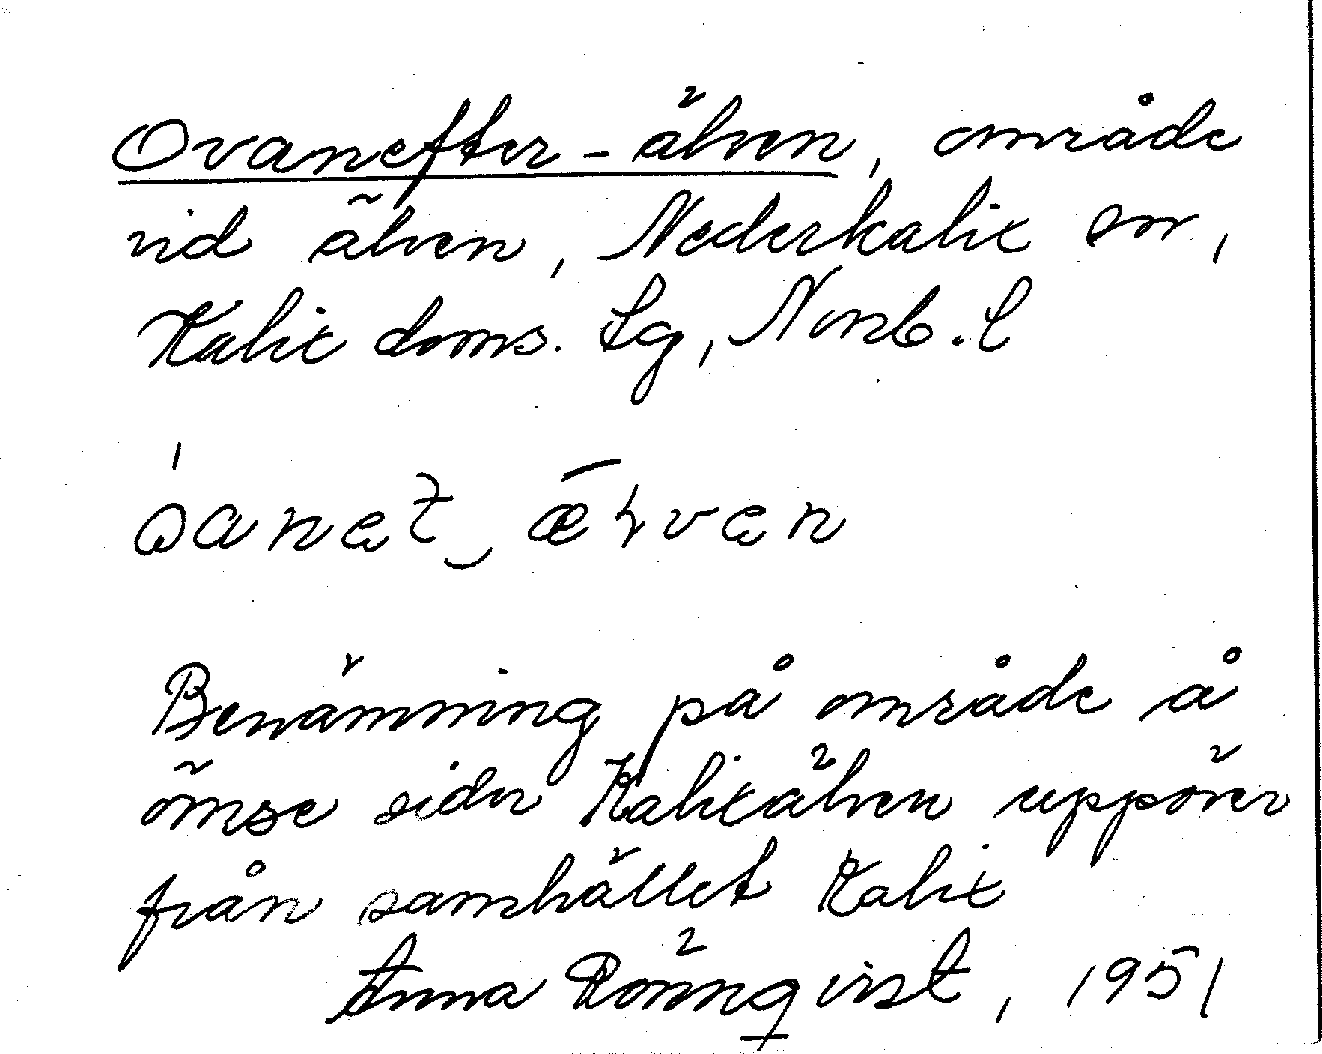 Ovanefter-älven, område
vid älven, Nederkalix sn,
Kalix doms. tg, Norrb. l
Benämning på område å
ömse sider Kalixälven uppöver
från samhället Kalix
Anna Rönnqvist, 1951